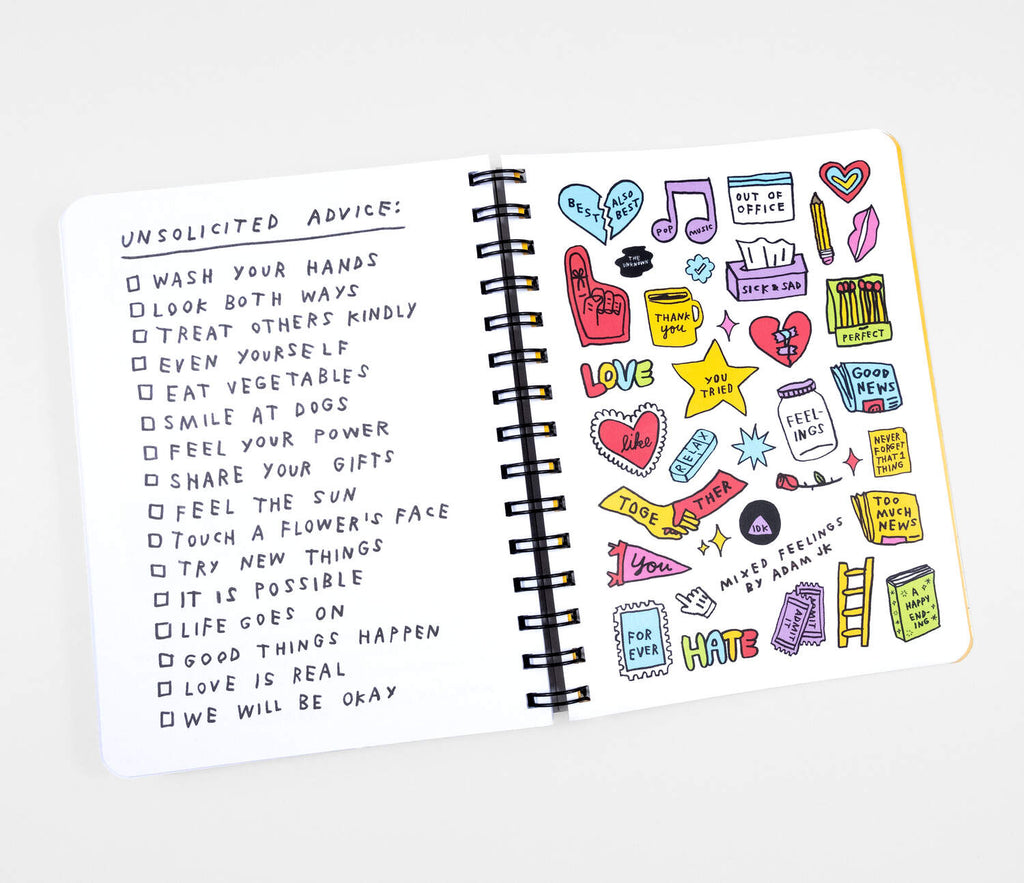 UNSOLICITED ADVICE:
WASH YOUR HANDS
LOOK BOTH WAYS
TREAT OTHERS KINDLY
EVEN YOURSELF
EAT VEGETABLES
SMILE AT DOGS
FEEL YOUR POWER
SHARE YOUR GIFTS
FEEL THE SUN
TOUCH A FLOWER'S FACE
TRY NEW THINGS
IT IS POSSIBLE
LIFE GOES ON
GOOD THINGS HAPPEN
LOVE IS REAL
WE WILL BE OKAY
BEST
ALSO
BEST
POP
MUSIC
OUT OF
OFFICE
THE
UNKNOWN
SICK & SAD
THANK
YOU
PERFECT
LOVE
YOU
TRIED
GOOD
NEWS
FEEL-
INGS
like
RELAX
NEVER
FORGET
THAT 1
THING
TOGE
THER
IDK
TOO
MUCH
NEWS
You
MIXED FEELINGS
BY ADAM JK
FOR
EVER
HATE
ADMIT
IT
ADMIT
A
HAPPY
END-
ING